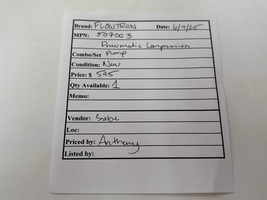 Brand: FLOWTRON Date: 6/9/25
MPN: 507003
Pneumatic Compression
Combo/Set Pump
Condition: New
Price: $ 595
Qty Available: 1
Memo:
Vendor: Sabe
Loc:
Priced by: Anthony
Listed by: